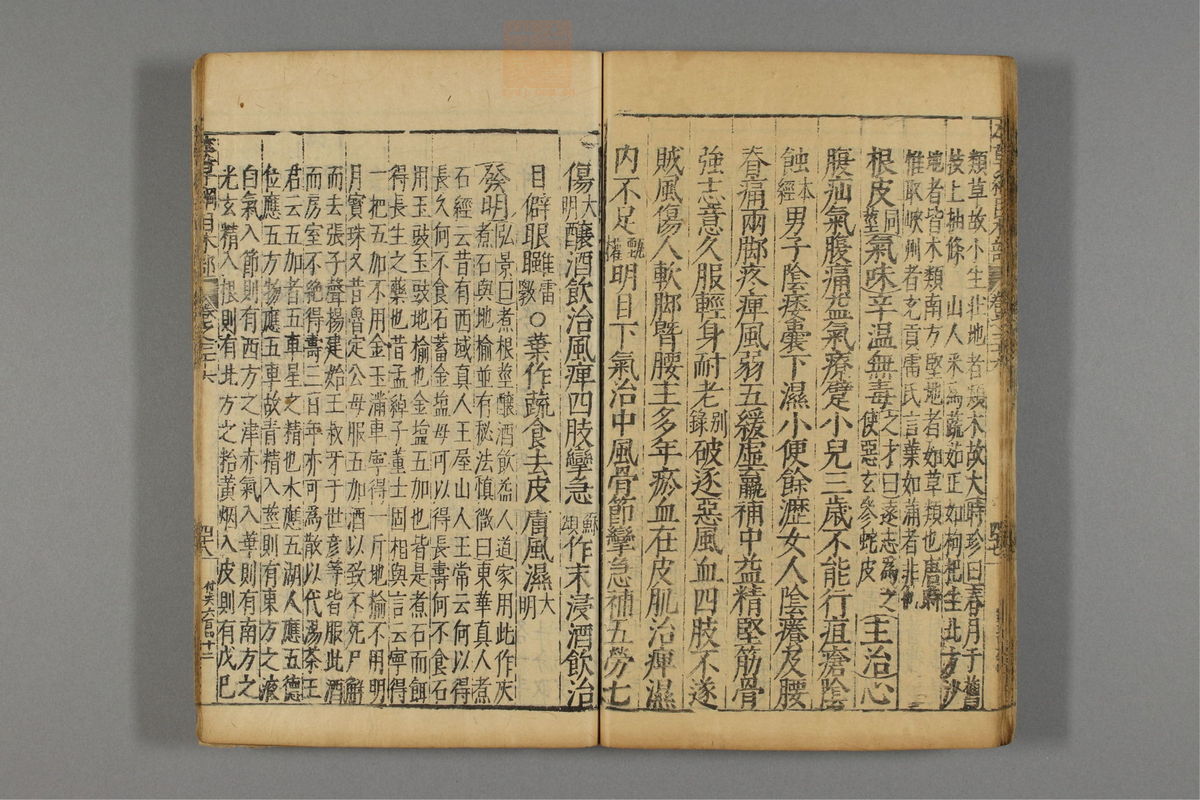 類草故小生北地者類木故大時珍曰春月于舊
枝上抽條山人采為蔬茹正如枸杞生北方沙
地者皆木類南方堅地者如草類也唐時
惟取峽州者充貢雷氏言葉如蒲者非
根皮同莖氣味辛溫無毒之才曰遠志為之使惡玄參蛇皮主治心
腹疝氣腹痛益氣療躄小兒三歲不能行疽瘡陰
蝕本經男子陰痿囊下濕小便餘瀝女人陰癢及腰
脊痛兩脚疼痺風弱五緩虛羸補中益精堅筋骨
強志意久服輕身耐老別錄破逐惡風血四肢不遂
賊風傷人軟脚䏶腰主多年瘀血在皮肌治痺濕
內不足甄權明目下氣治中風骨節攣急補五勞七
傷大明釀酒飲治風痺四肢攣急蘇頌作末浸酒飲治
目僻眼䁾雷斆○葉作蔬食去皮膚風濕大明
發明弘景曰煮根莖釀酒飲益人道家用此作灰
煮石與地榆並有秘法慎微曰東華真人煮
石經云昔有西域真人王屋山人王常云何以得
長久何不食石蓄金鹽母何以得長壽何不食石
用玉豉玉豉地榆也金鹽五加也皆是煮石而餌
得長生之藥也昔孟綽子董士固相與言云寧得
一把五加不用金玉滿車寧得一斤地榆不用明
月寶珠又昔魯定公母服五加酒以致不死尸解
而去張子聲楊建始王叔牙于世彥等皆服此酒
而房室不絕得壽三百年亦可為散以代湯茶王
君云五加者五車星之精也水應五湖人應五德
位應五方物應五車故青精入莖則有東方之液
白氣入節則有西方之津赤氣入華則有南方之
光玄精入根則有北方之飴黃烟入皮則有戊己